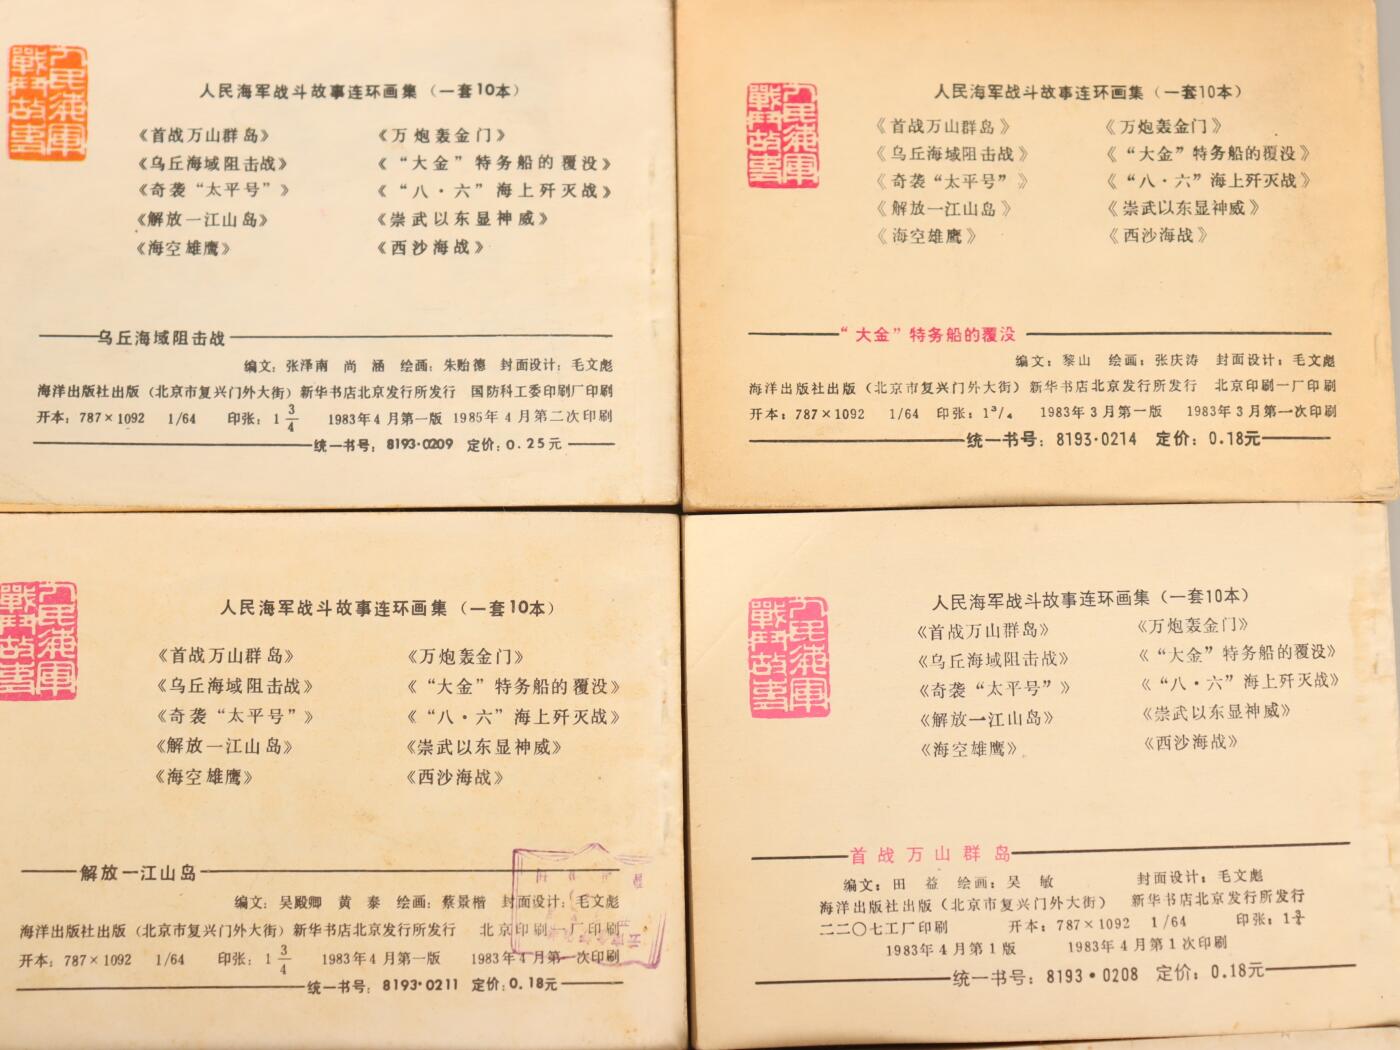 人民海军
战斗故事
人民海军战斗故事连环画集（一套10本）
《首战万山群岛》 《万炮轰金门》
《乌丘海域阻击战》 《“大金”特务船的覆没》
《奇袭“太平号”》 《“八·六”海上歼灭战》
《解放一江山岛》 《崇武以东显神威》
《海空雄鹰》 《西沙海战》
乌丘海域阻击战
编文：张泽南 尚 涵 绘画：朱贻德 封面设计：毛文彪
海洋出版社出版（北京市复兴门外大街）新华书店北京发行所发行 国防科工委印刷厂印刷
开本：787×1092 1/64 印张：1 3/4 1983年4月第一版 1985年4月第二次印刷
统一书号：8193·0209 定价：0.25元
人民海军
战斗故事
人民海军战斗故事连环画集（一套10本）
《首战万山群岛》 《万炮轰金门》
《乌丘海域阻击战》 《“大金”特务船的覆没》
《奇袭“太平号”》 《“八·六”海上歼灭战》
《解放一江山岛》 《崇武以东显神威》
《海空雄鹰》 《西沙海战》
“大金”特务船的覆没
编文：黎山 绘画：张庆涛 封面设计：毛文彪
海洋出版社出版（北京市复兴门外大街）新华书店北京发行所发行 北京印刷一厂印刷
开本：787×1092 1/64 印张：1 3/4 1983年3月第一版 1983年3月第一次印刷
统一书号：8193·0214 定价：0.18元
人民海军
战斗故事
人民海军战斗故事连环画集（一套10本）
《首战万山群岛》 《万炮轰金门》
《乌丘海域阻击战》 《“大金”特务船的覆没》
《奇袭“太平号”》 《“八·六”海上歼灭战》
《解放一江山岛》 《崇武以东显神威》
《海空雄鹰》 《西沙海战》
解放一江山岛
编文：吴殿卿 黄 泰 绘画：蔡景楷 封面设计：毛文彪
海洋出版社出版（北京市复兴门外大街）新华书店北京发行所发行 北京印刷一厂印刷
开本：787×1092 1/64 印张：1 3/4 1983年4月第一版 1983年4月第一次印刷
统一书号：8193·0211 定价：0.18元
人民海军
战斗故事
人民海军战斗故事连环画集（一套10本）
《首战万山群岛》 《万炮轰金门》
《乌丘海域阻击战》 《“大金”特务船的覆没》
《奇袭“太平号”》 《“八·六”海上歼灭战》
《解放一江山岛》 《崇武以东显神威》
《海空雄鹰》 《西沙海战》
首战万山群岛
编文：田 益 绘画：吴 敏 封面设计：毛文彪
海洋出版社出版（北京市复兴门外大街） 新华书店北京发行所发行
二二〇七工厂印刷 开本：787×1092 1/64 印张：1 3/4
1983年4月第1版 1983年4月第1次印刷
统一书号：8193·0208 定价：0.18元